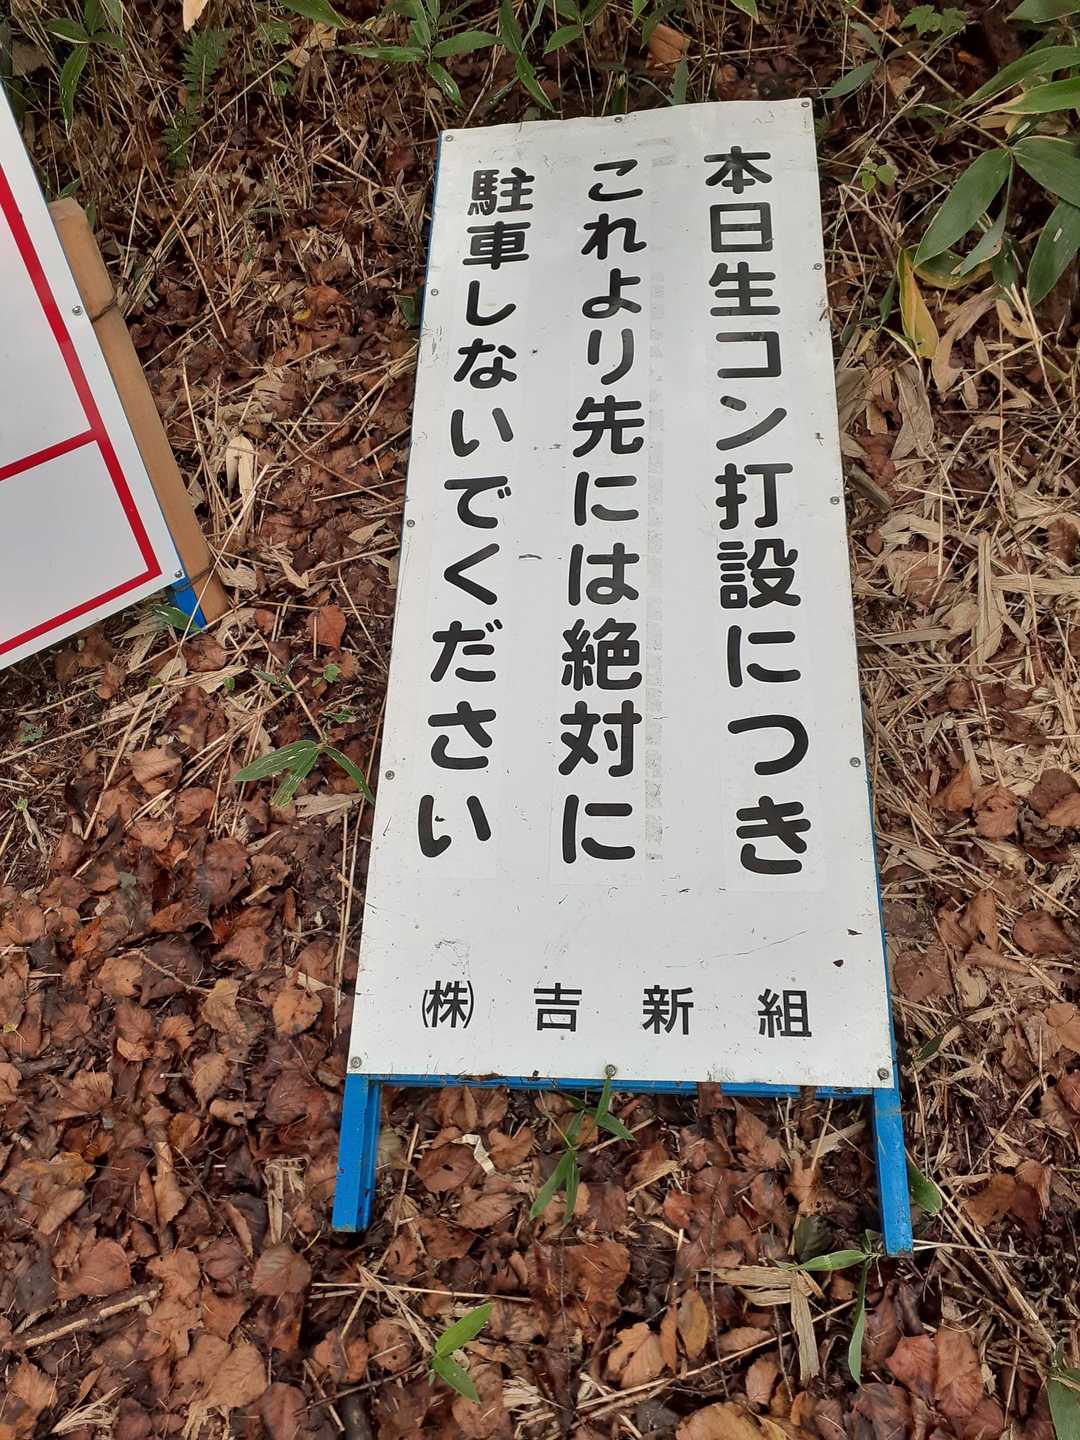 本日生コン打設につき
これより先には絶対に
駐車しないでください
㈱ 吉 新 組